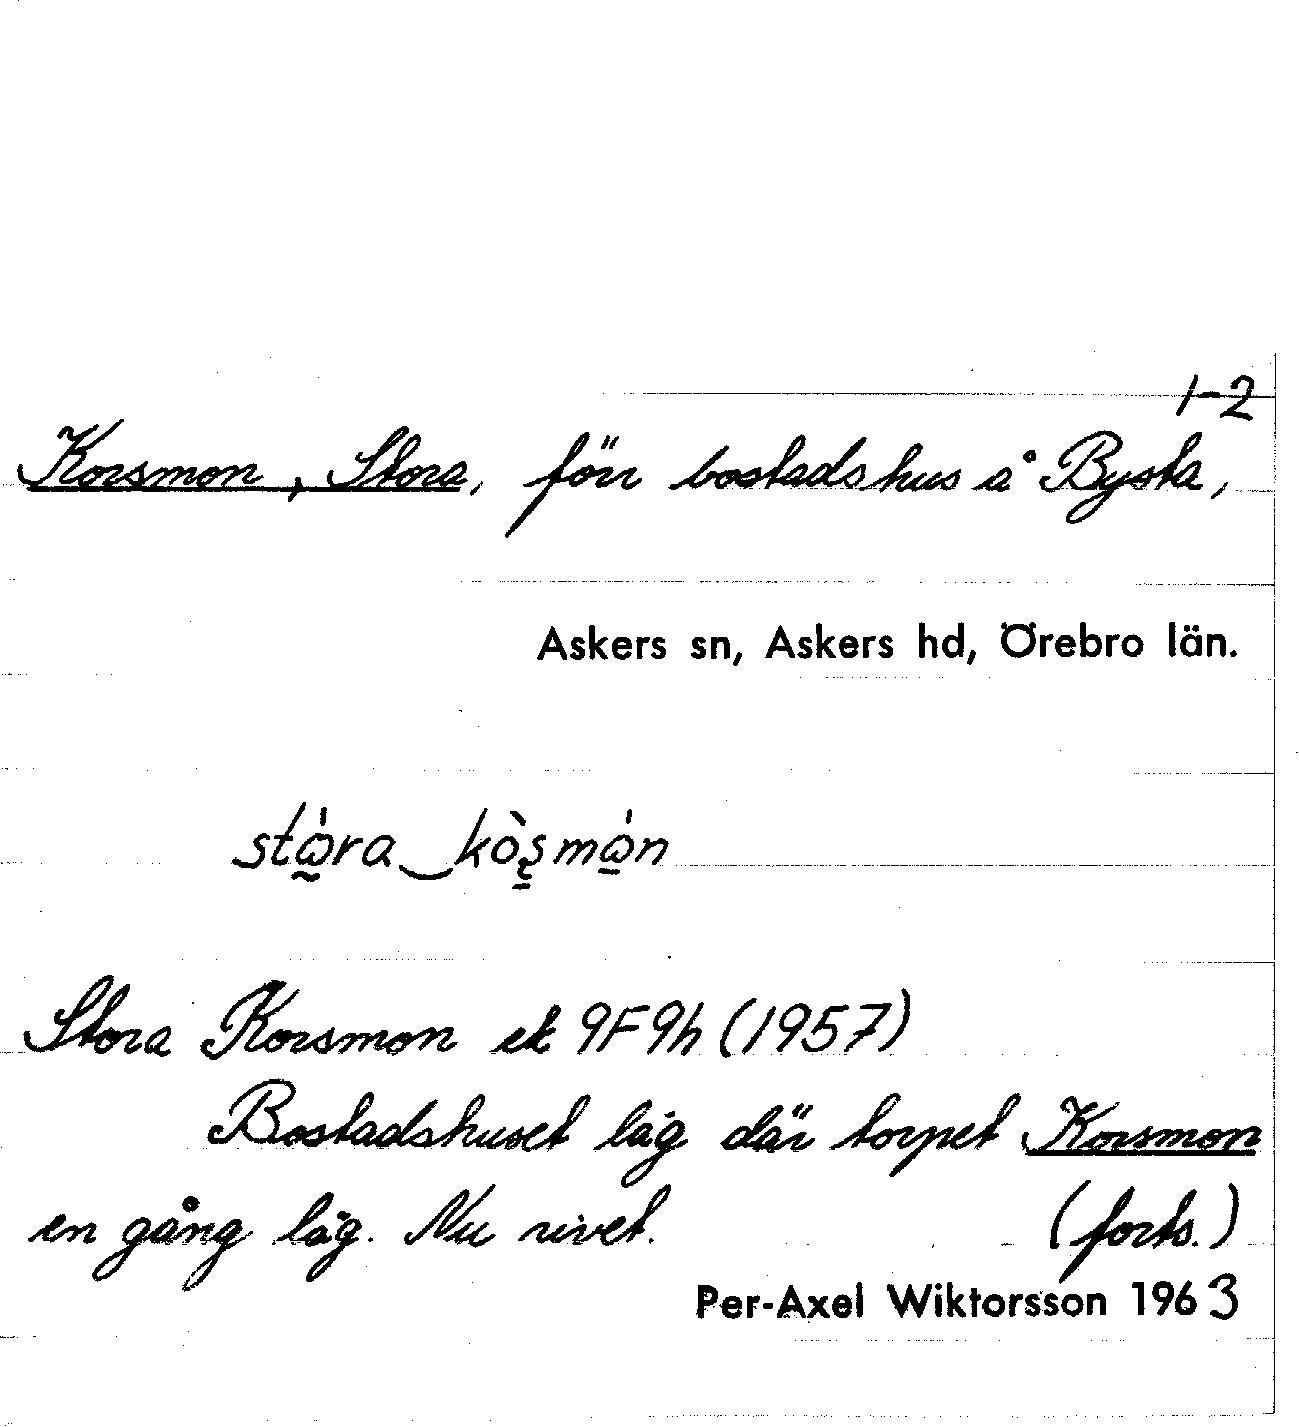 1-2
Korsmon, Stora, förr bostadshus å Bysta,
Askers sn, Askers hd, Örebro län.
stώ̰ra‿kò̱şmώ̱n
Stora Korsmon ek 9F9h (1957)
Bostadshuset låg där torpet Korsmon
en gång låg. Nu rivet. (forts.)
Per-Axel Wiktorsson 1963